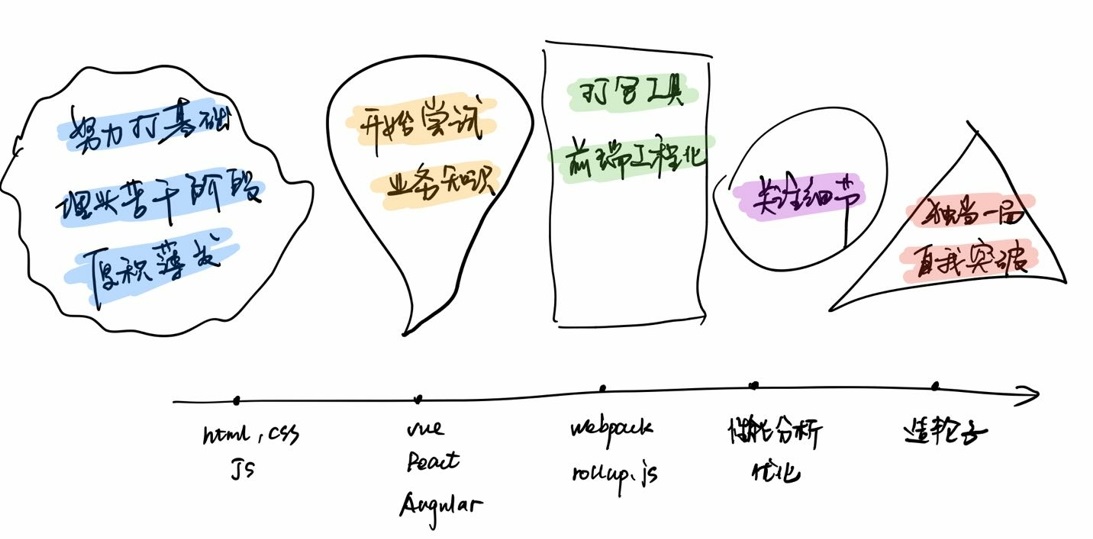 努力打基础
埋头苦干阶段
厚积薄发
开始尝试
业务知识
打包工具
前端工程化
关注细节
独当一面
自我突破
html, css
JS
vue
React
Angular
webpack
rollup.js
性能分析
优化
造轮子